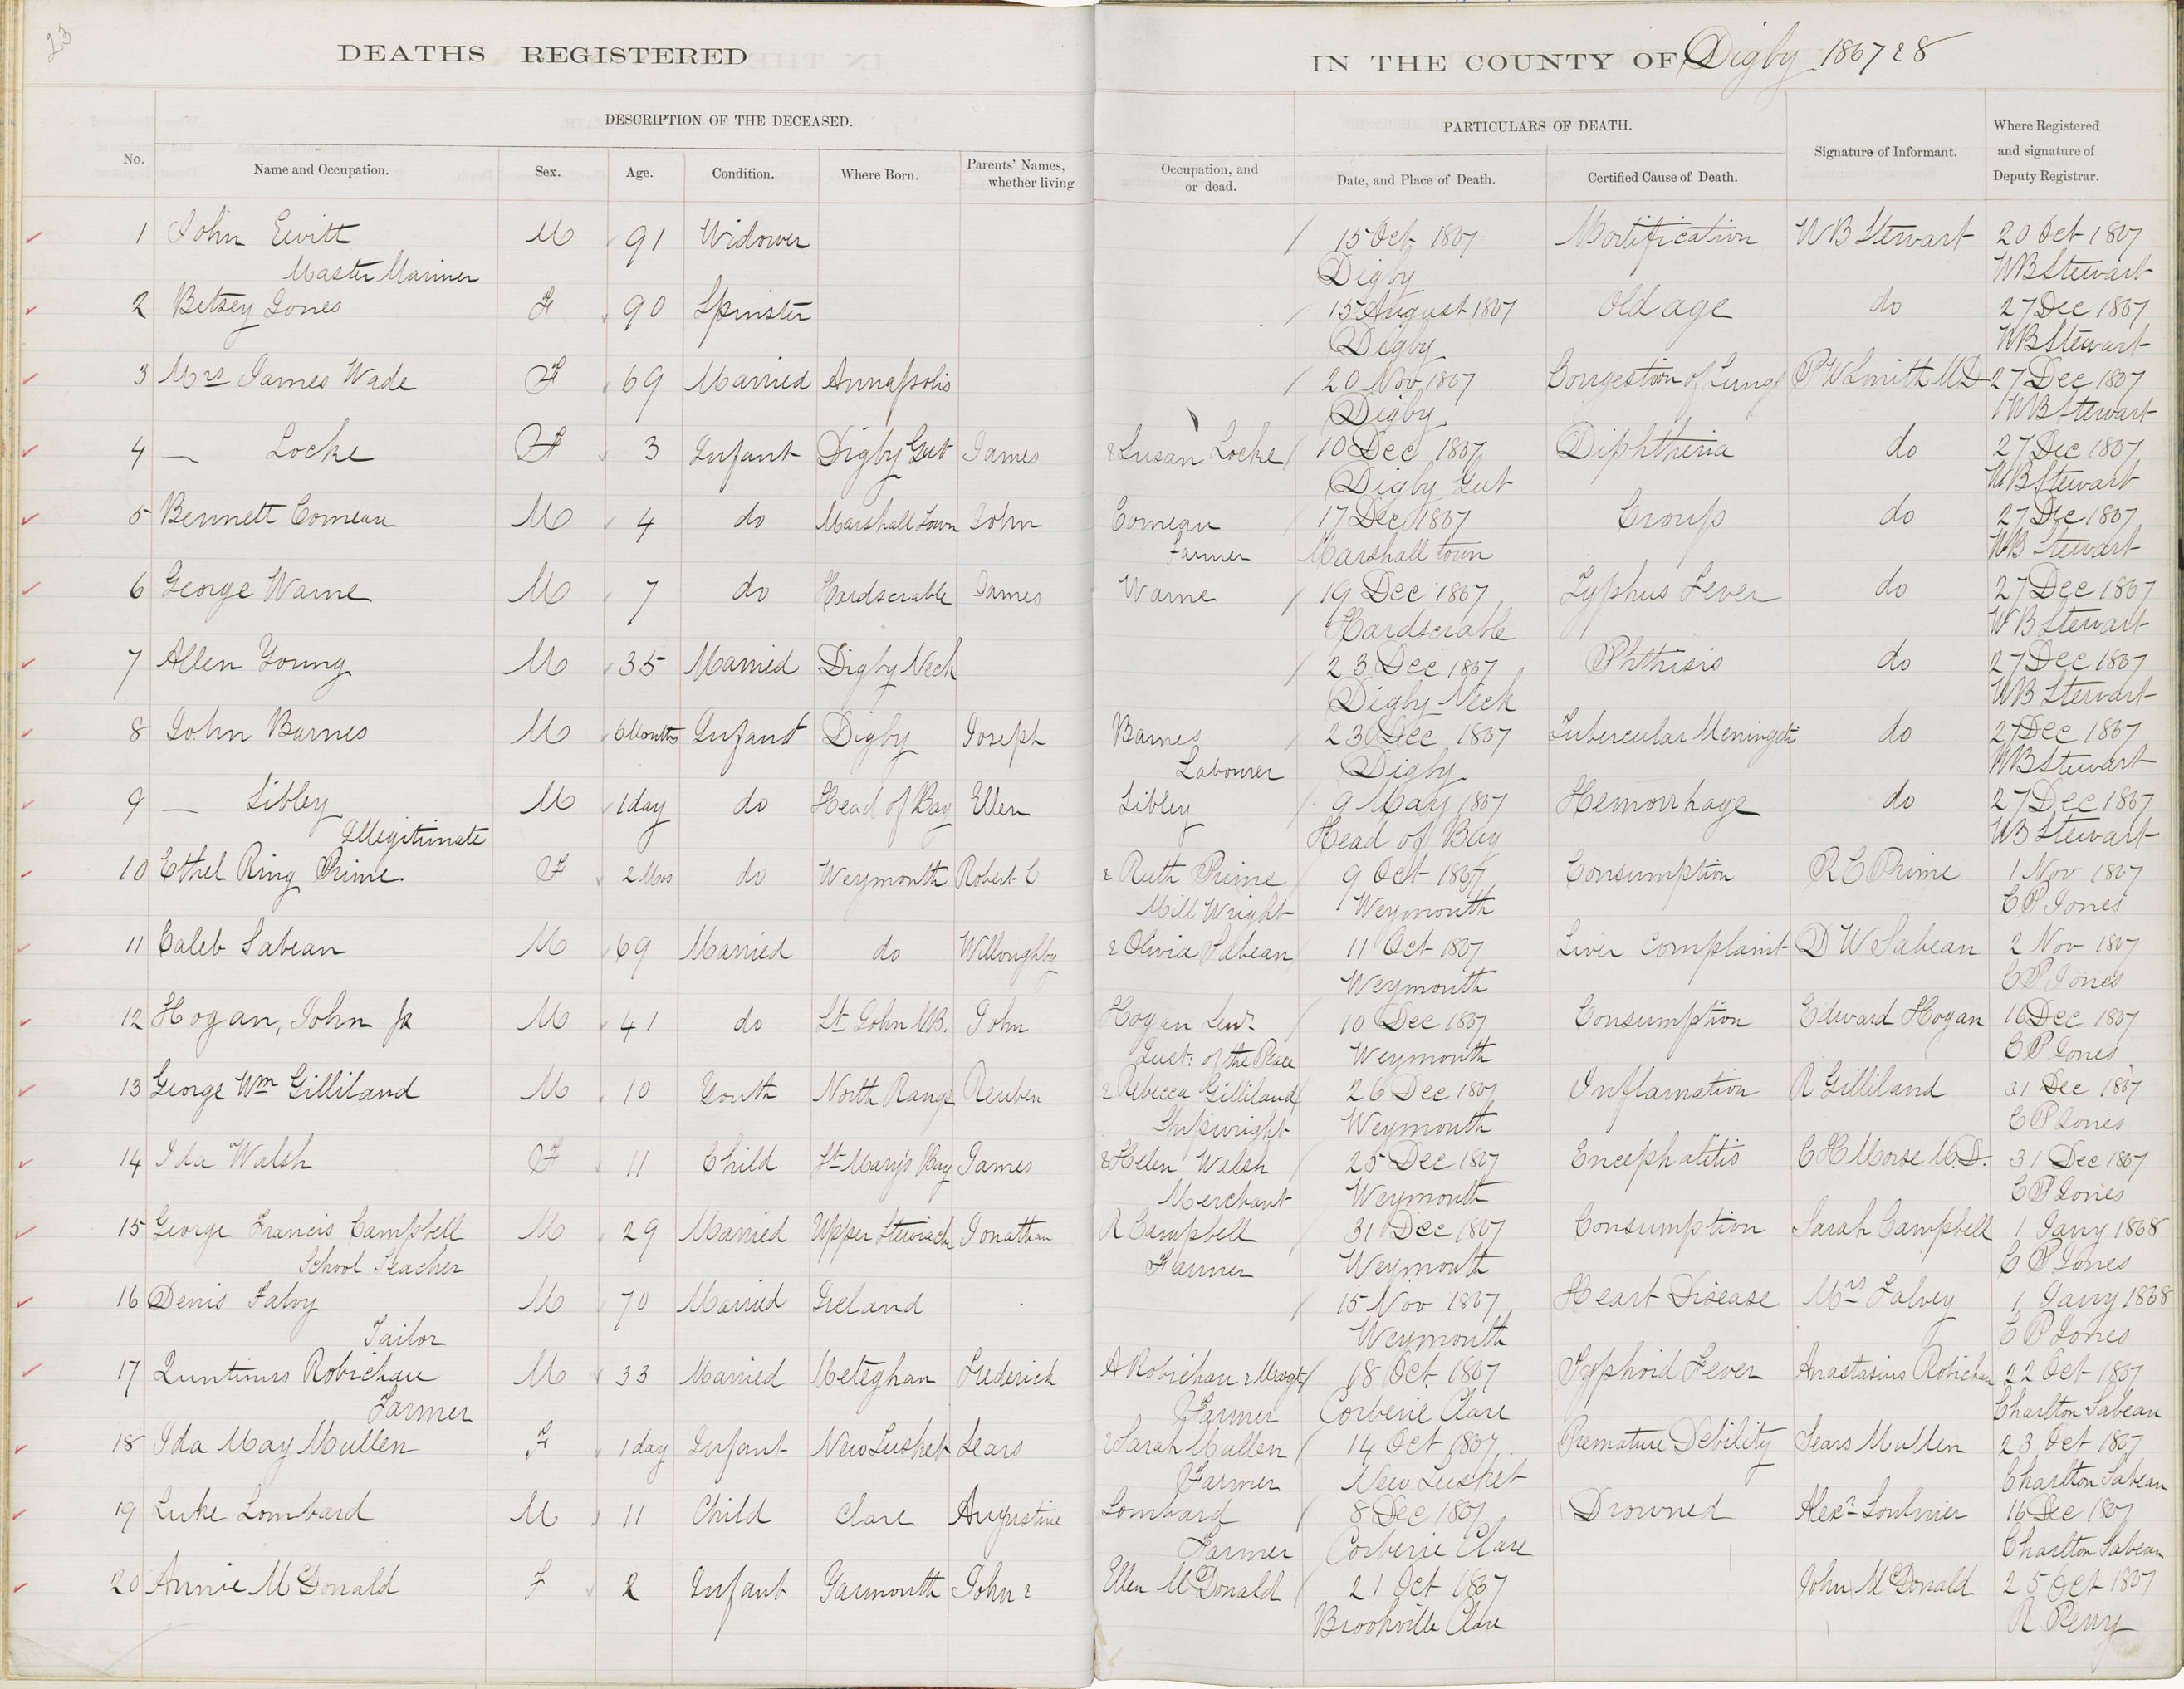 23
DEATHS REGISTERED IN THE COUNTY OF Digby 1867 & 8
DESCRIPTION OF THE DECEASED. PARTICULARS OF DEATH. Where Registered
and signature of
Deputy Registrar.
No. Name and Occupation. Sex. Age. Condition. Where Born. Parents' Names,
whether living Occupation, and
or dead. Date, and Place of Death. Certified Cause of Death. Signature of Informant.
1 John Evitt M 91 Widower / 15 Oct 1867 Mortification W B Stewart 20 Oct 1867
Master Mariner Digby W B Stewart
2 Betsey Jones F 90 Spinster / 15 August 1867 Old age do 27 Dec 1867
Digby W B Stewart
3 Mrs James Wade F 69 Married Annapolis / 20 Nov 1867 Congestion of Lungs P W Smith MD 27 Dec 1867
Digby W B Stewart
4 — Locke F 3 Infant Digby Gut James & Susan Locke / 10 Dec 1867 Diphtheria do 27 Dec 1867
Digby Gut W B Stewart
5 Bennett Comeau M 4 do Marshall Town John Comeau / 17 Dec 1867 Croup do 27 Dec 1867
Farmer Marshall town W B Stewart
6 George Warne M 7 do Hardscrable James Warne / 19 Dec 1867 Typhus Fever do 27 Dec 1867
Hardscrable W B Stewart
7 Allen Young M 35 Married Digby Neck / 23 Dec 1867 Phthisis do 27 Dec 1867
Digby Neck W B Stewart
8 John Barnes M 6 Months Infant Digby Joseph Barnes / 23 Dec 1867 Tubercular Meningitis do 27 Dec 1867
Labourer Digby W B Stewart
9 — Sibley M 1 day do Head of Bay Ellen Sibley / 9 May 1867 Hemorrhage do 27 Dec 1867
Illegitimate Head of Bay W B Stewart
10 Ethel Ring Prime F 2 Mos do Weymouth Robert C & Ruth Prime / 9 Oct 1867 Consumption R C Prime 1 Nov 1867
Mill Wright Weymouth C P Jones
11 Caleb Sabean M 69 Married do Willoughby & Olivia Sabean / 11 Oct 1867 Liver Complaint D W Sabean 2 Nov 1867
Weymouth C P Jones
12 Hogan, John Jr M 41 do St John N.B. John Hogan Senr. / 10 Dec 1867 Consumption Edward Hogan 16 Dec 1867
Just: of the Peace Weymouth C P Jones
13 George Wm Gilliland M 10 Youth North Range Reuben & Rebecca Gilliland / 26 Dec 1867 Inflamation R Gilliland 31 Dec 1867
Shipwright Weymouth C P Jones
14 Ida Walsh F 11 Child St Mary's Bay James & Helen Walsh / 25 Dec 1867 Encephalitis C H Morse M.D. 31 Dec 1867
Merchant Weymouth C P Jones
15 George Francis Campbell M 29 Married Upper Stewiack Jonathan R Campbell / 31 Dec 1867 Consumption Sarah Campbell 1 Jany 1868
School Teacher Farmer Weymouth C P Jones
16 Denis Falvy M 70 Married Ireland / 15 Nov 1867 Heart Disease Mrs Falvey 1 Jany 1868
Tailor Weymouth C P Jones
17 Quntinus Robichau M 33 Married Meteghan Frederick A Robichau & Margt / 18 Oct 1867 Typhoid Fever Anastasius Robichau 22 Oct 1867
Farmer Farmer Corberie Clare Charlton Sabean
18 Ida May Mullen F 1 day Infant New Tusket Sears & Sarah Mullen / 14 Oct 1867 Premature Debility Sears Mullen 23 Oct 1867
Farmer New Tusket Charlton Sabean
19 Luke Lombard M 11 Child Clare Augustine Lombard / 8 Dec 1867 Drowned Alexr Soulnier 16 Dec 1867
Farmer Corberie Clare Charlton Sabean
20 Annie McDonald F 2 Infant Yarmouth John & Ellen McDonald / 21 Oct 1867 John McDonald 25 Oct 1867
Brookville Clare R Perry